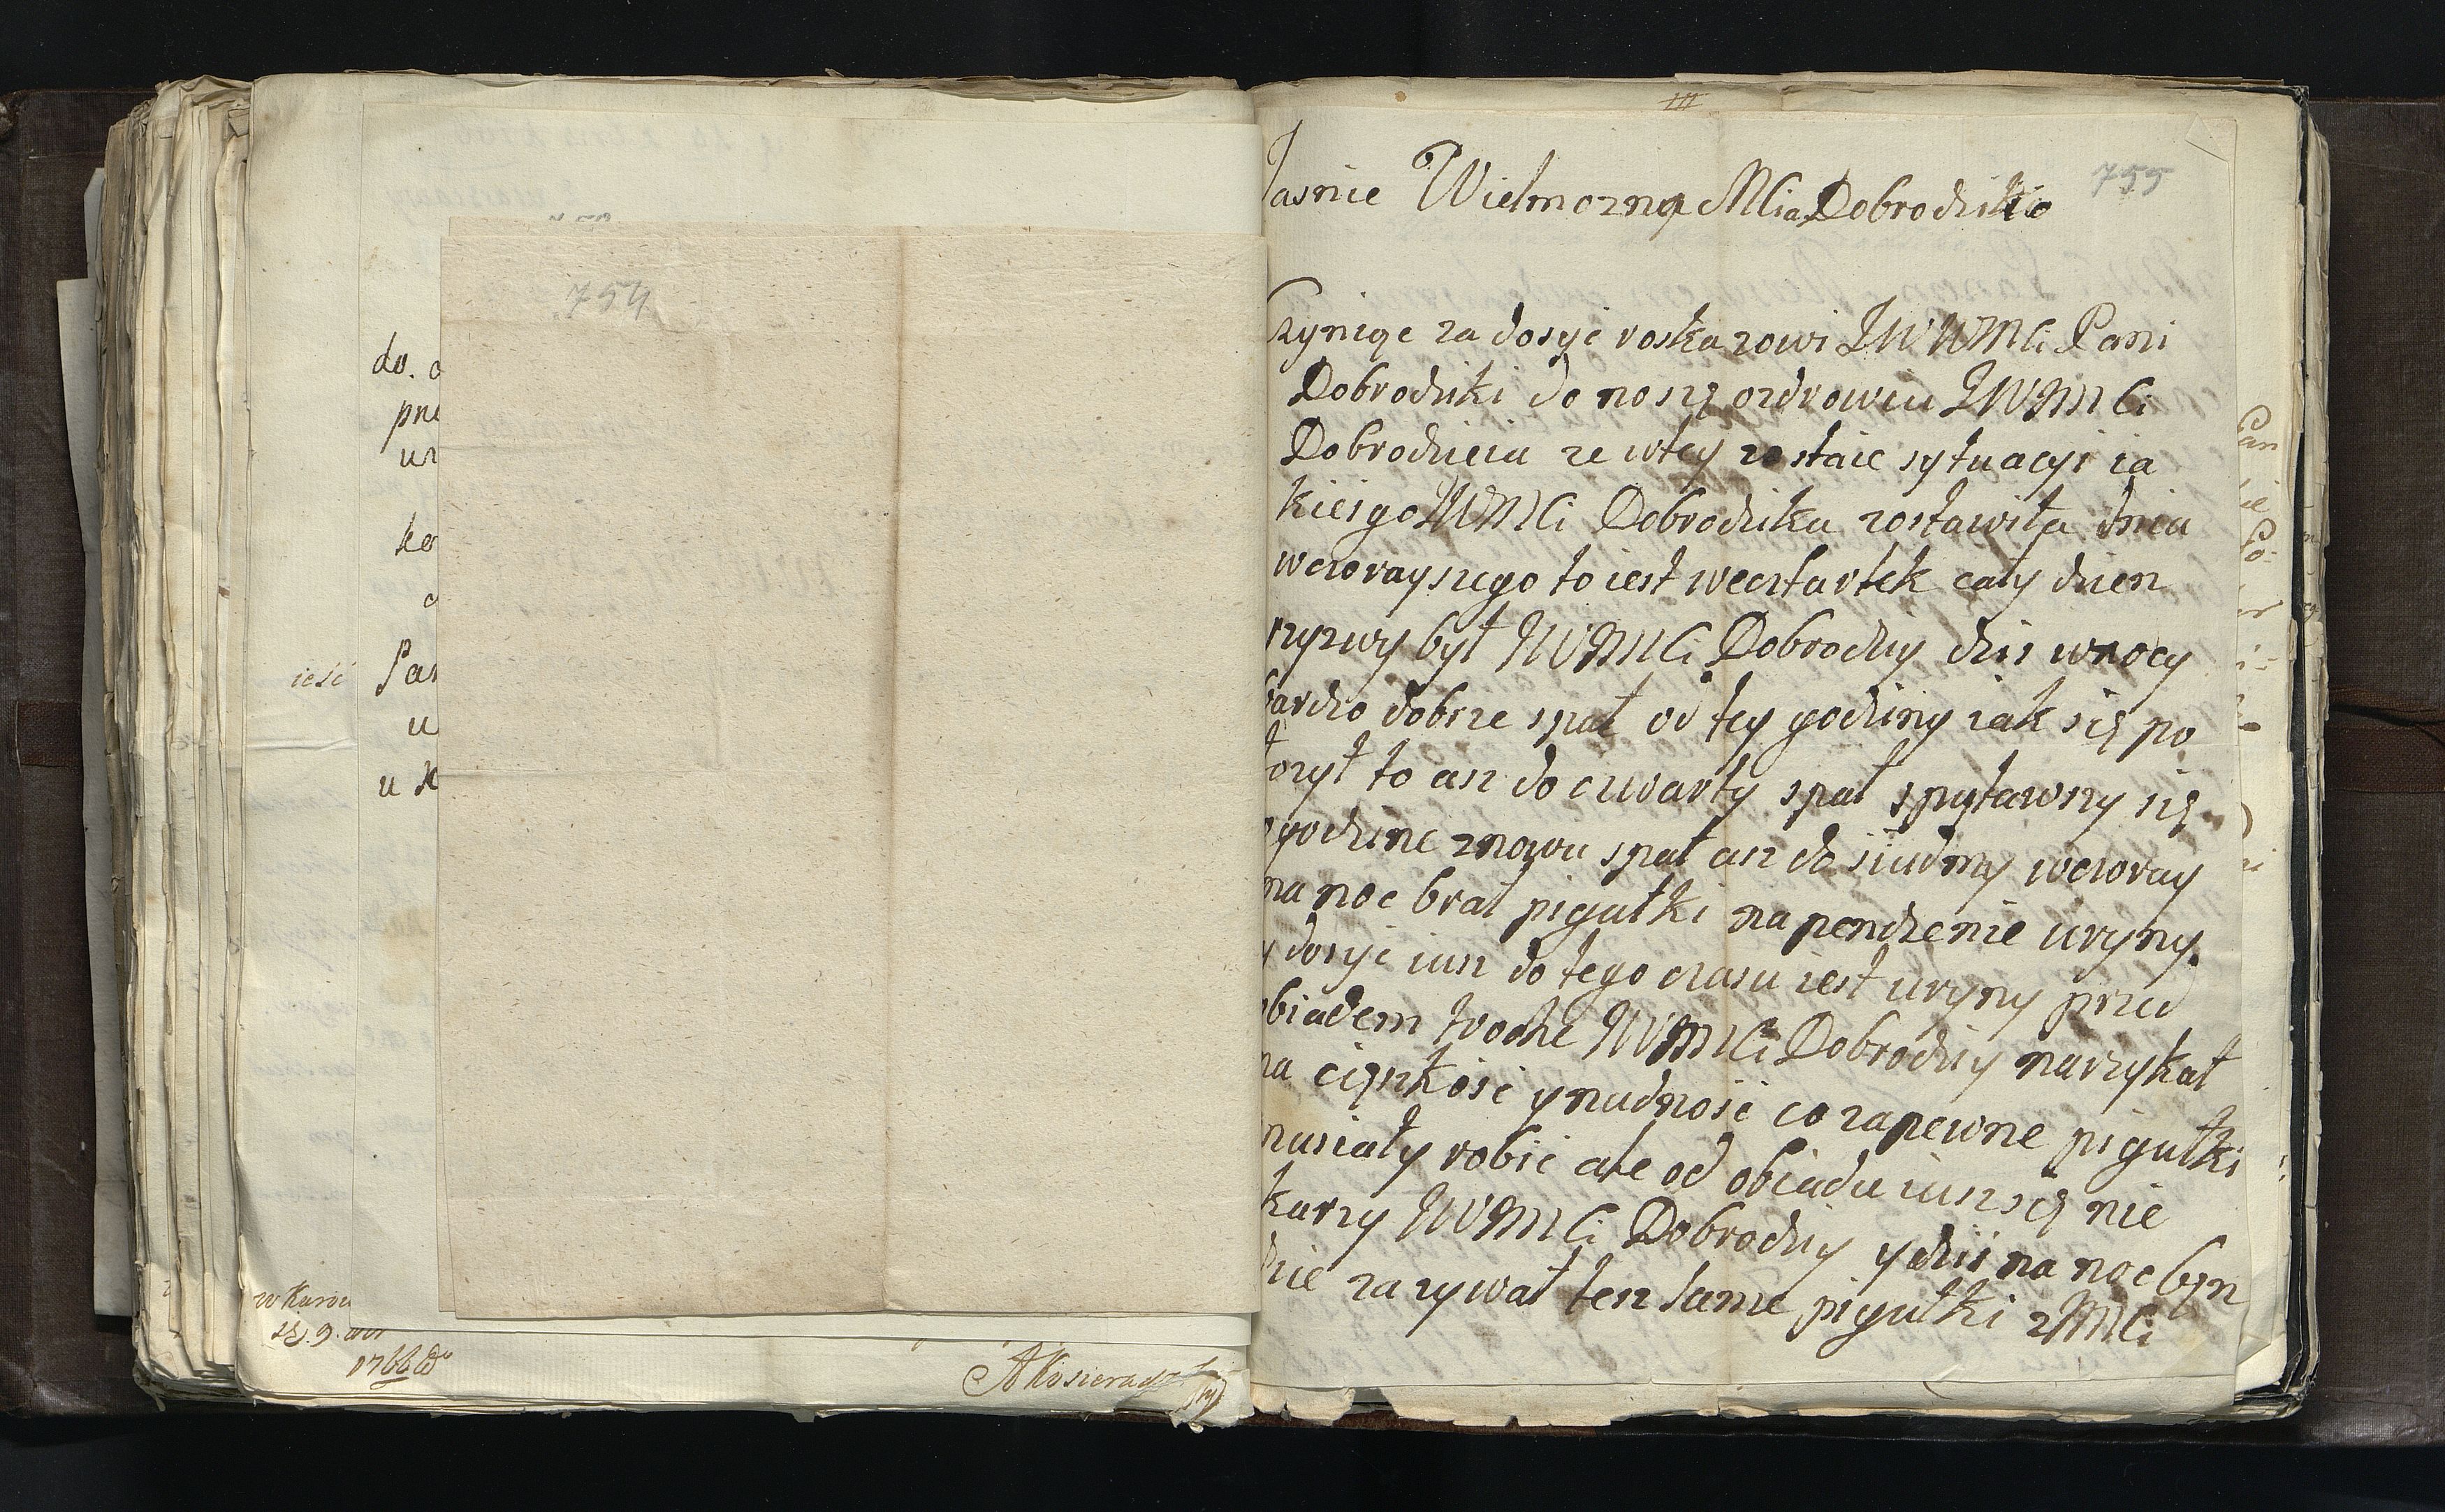 754
do.
ko
ieść
u
u
1766
III
755
Jasnie Wielmozna Mcia Dobrodziko
Czyniąc za dosyć roskazowi JWWMCi Pani
Dobrodziki do noszę ozdrowiu JWMCi
Dobrodzieia ze wtey zostaie sytuacyi ia
kiesgo JWMCi Dobrodzika zostawiła dnia
wczorayszego to iest weczfartek cały dzien
rzyzwy był JWMCi Dobrodziy dzis wnocy
bardzo dobrze spał od tey godziny iak się po
łozył to asz do czwarty spał spytawszy się
godzine znowu spał asz do siudmy wczoray
na noc brał pigułki na pendzenie uryny.
y dosyć iusz do tego czasu iest uryny przed
obiadem troche JWMCi Dobrodziy narzykał
na cięszkość ynudność co zapewne pigułki
musiały robić ale od obiadu iusz się nie
karzy JWMCi Dobrodziy y dziś na noc bęn
dzie zazywał tesz same pigułki JMCi